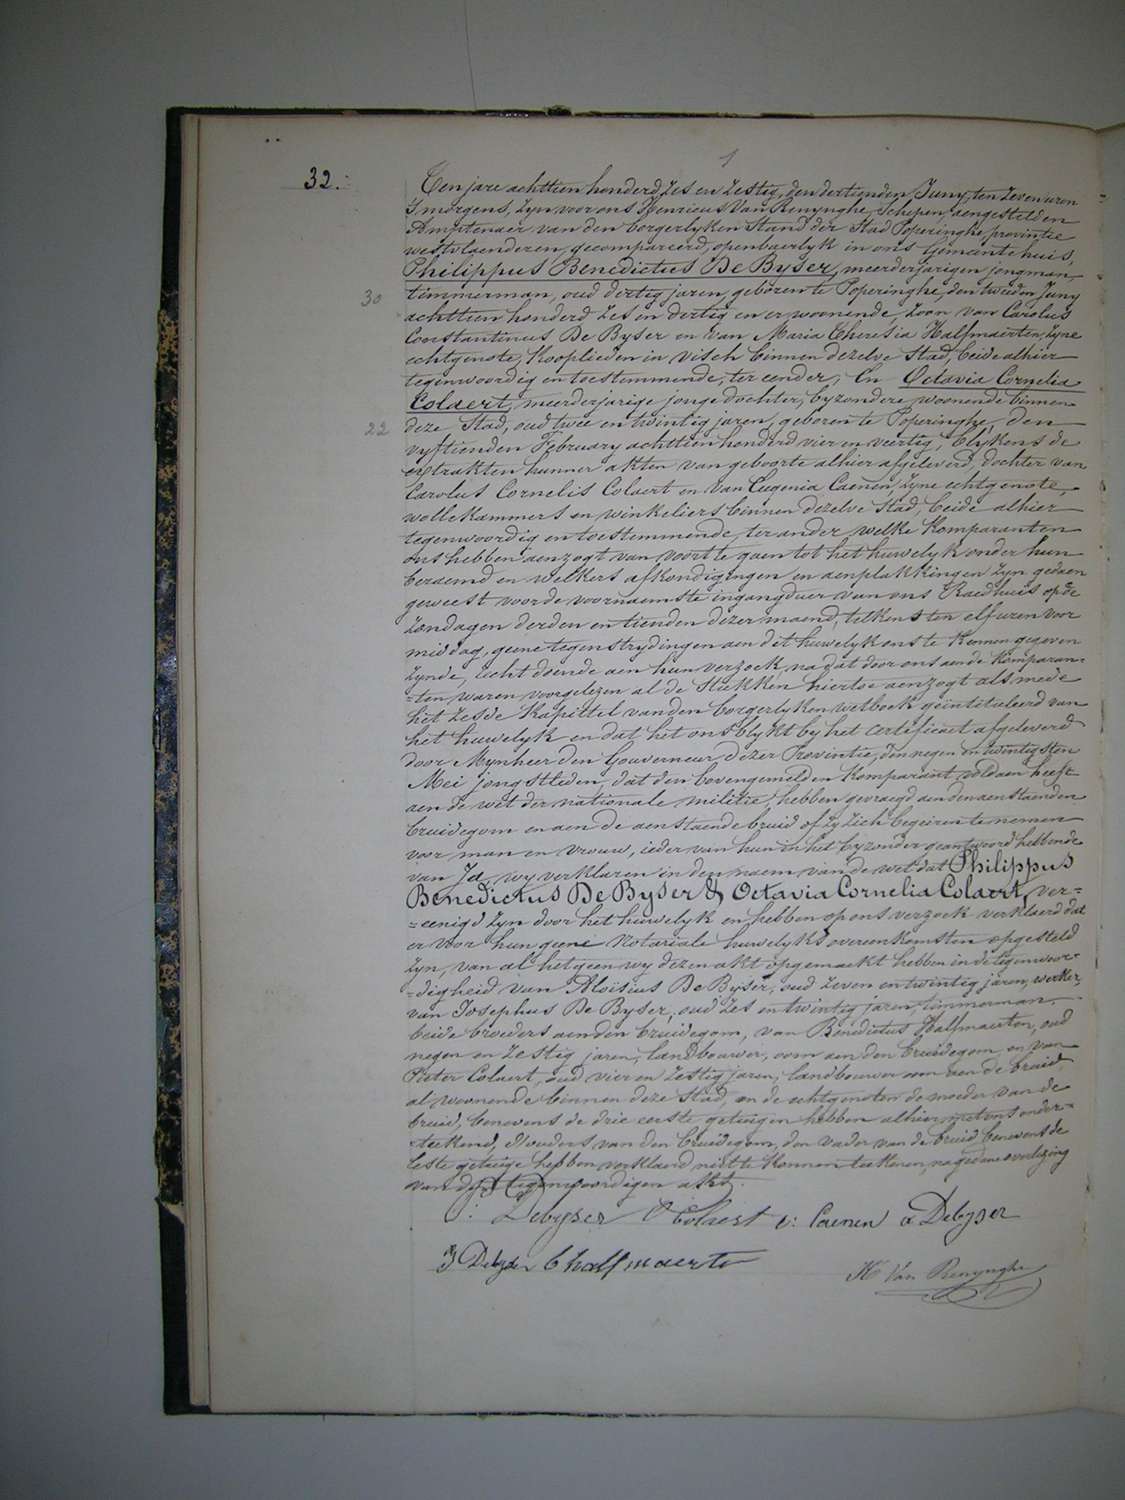 32.
Ten jare achttien honderd zes en zestig, den dertienden Juny, ten zeven uren
's morgens, zyn voor ons Henricus Van Renynghe, Schepen, aengestelden
Amptenaer van den borgerlyken Stand der Stad Poperinghe, provintie
westvlaenderen, gecompareerd, openbaerlyk in ons Gemeentehuis,
Philippus Benedictus De Byser, meerderjarigen jongman,
30
timmerman, oud dertig jaren, geboren te Poperinghe, den tweeden Juny
achttien honderd zes en dertig en er woonende, zoon van Carolus
Constantinus De Byser en van Maria Theresia Halfmaerten, zyne
echtgenote, Kooplieden in visch binnen dezelve Stad, beide alhier
tegenwoordig en toestemmende, ter eender, En Octavia Cornelia
Colaert, meerderjarige jonge dochter, byzondere woonende binnen
22
deze Stad, oud twee en twintig jaren, geboren te Poperinghe, den
vyftienden February achttien honderd vier en veertig, blykens de
extrakten hunner akten van geboorte alhier afgeleverd, dochter van
Carolus Cornelis Colaert en van Eugenia Caenen, zyne echtgenote,
wollekammers en winkeliers binnen dezelve Stad, beide alhier
tegenwoordig en toestemmende, ter ander, welke Komparanten
ons hebben aenzogt van voort te gaen tot het huwelyk onder hun
beraemd en welkers afkondigingen en aenplakkingen zyn gedaen
geweest voor de voornaemste ingangdeur van ons Raedhuis op de
zondagen derden en tienden dezer maend, telkens ten elf uren voor
middag, geene tegenstrydingen aen dit huwelyk ons te kennen gegeven
zynde, recht doende aen hun verzoek, na dat door ons aen de Komparan=
=ten waren voorgelezen al de Stukken hiertoe aenzogt als mede
het zesde Kapittel van den borgerlyken wetboek geïntituleerd van
het huwelyk en dat het ons blykt by het certificaet afgeleverd
door Mynheer den Gouverneur dezer Provintie, den negen en twintigsten
Mei jongstleden, dat den bovengemelden Komparant voldaen heeft
aen de wet der nationale militie, hebben gevraegd aen den aenstaenden
bruidegom en aen de aenstaende bruid of zy zich begeiren te nemen
voor man en vrouw, ieder van hun in het byzonder geantwoord hebbende
van Ja, wy verklaren in den naem van de wet dat Philippus
Benedictus De Byser & Octavia Cornelia Colaert, ver=
=eenigd zyn door het huwelyk en hebben op ons verzoek verklaerd dat
er voor hun geene Notariale huwelyks overeenkomsten opgesteld
zyn, van al hetgeen wy dezen akt opgemaekt hebben in de tegenwoor=
=digheid van Aloisius De Byser, oud zeven en twintig jaren, werker,
van Josephus De Byser, oud zes en twintig jaren, timmerman,
beide broeders aen den bruidegom, van Benedictus Halfmaerten, oud
negen en zestig jaren, landbouwer, oom aen den bruidegom en van
Pieter Colaert, oud vier en zestig jaren, landbouwer oom aen de bruid
al woonende binnen deze Stad, en de echtgenoten de moeder van de
bruid, benevens de drie eerste getuigen hebben alhier met ons onder=
=teekend, d'ouders van den bruidegom, den vader van de bruid benevens de
leste getuige hebben verklaerd niet te konnen teekenen, na gedane overlezing
van den tegenwoordigen akt.
Debyser O Colaert E: Caenen a Debyser
J Debyser b halfmaerte
H Van Renynghe